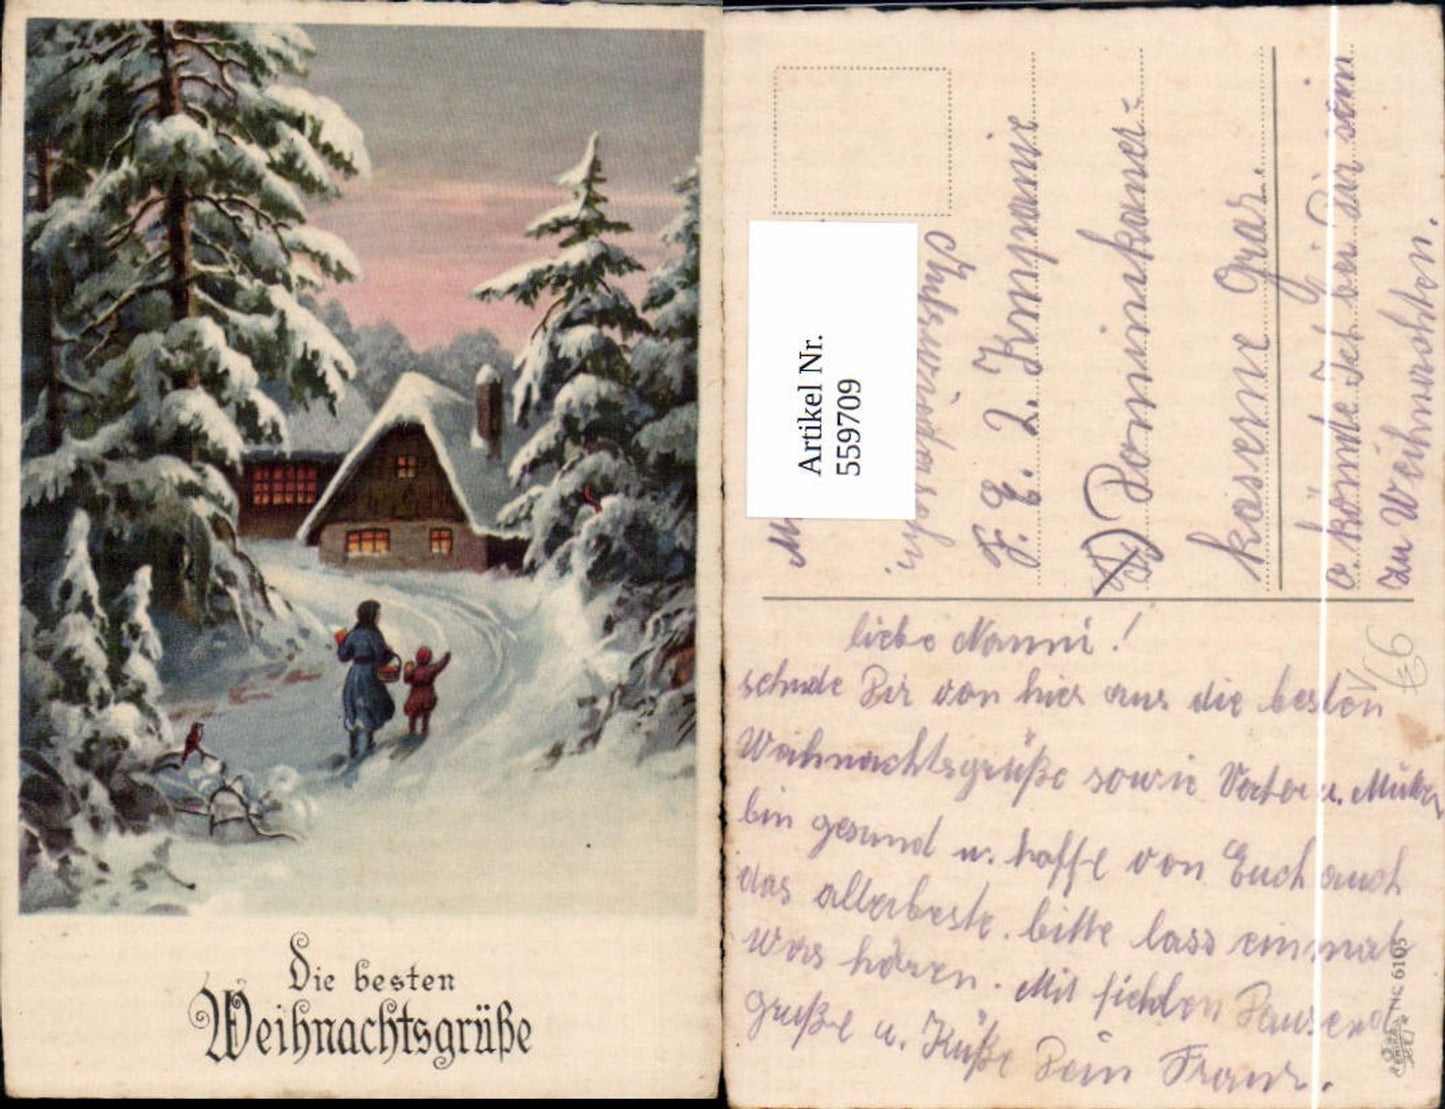 Die besten
Weihnachtsgrüße
Artikel Nr.
559709
2. Kompanie
Dominikaner-
kaserne Graz.
o. könnte Ich bei Dir sein
zu Weihnachten.
liebe Nanni!
sende Dir von hier aus die besten
Weihnachtsgrüße sowie Vater u. Mutter
bin gesund u. hoffe von Euch auch
das allerbeste. bitte lass einmal
was hören. Mit vielen Tausend
Grüße u. Küße Dein Franz.
Nr. 6105